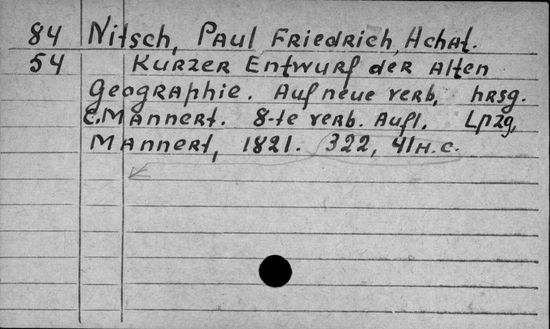 84 Nitsch, Paul Friedrich, Achat.
54 Kurzer Entwurf der Alten
Geographie. Auf neue verb, hrsg.
C. Mannert. 8-te verb. Aufl. Lpzg,
Mannert, 1821. 322, 41 н.с.